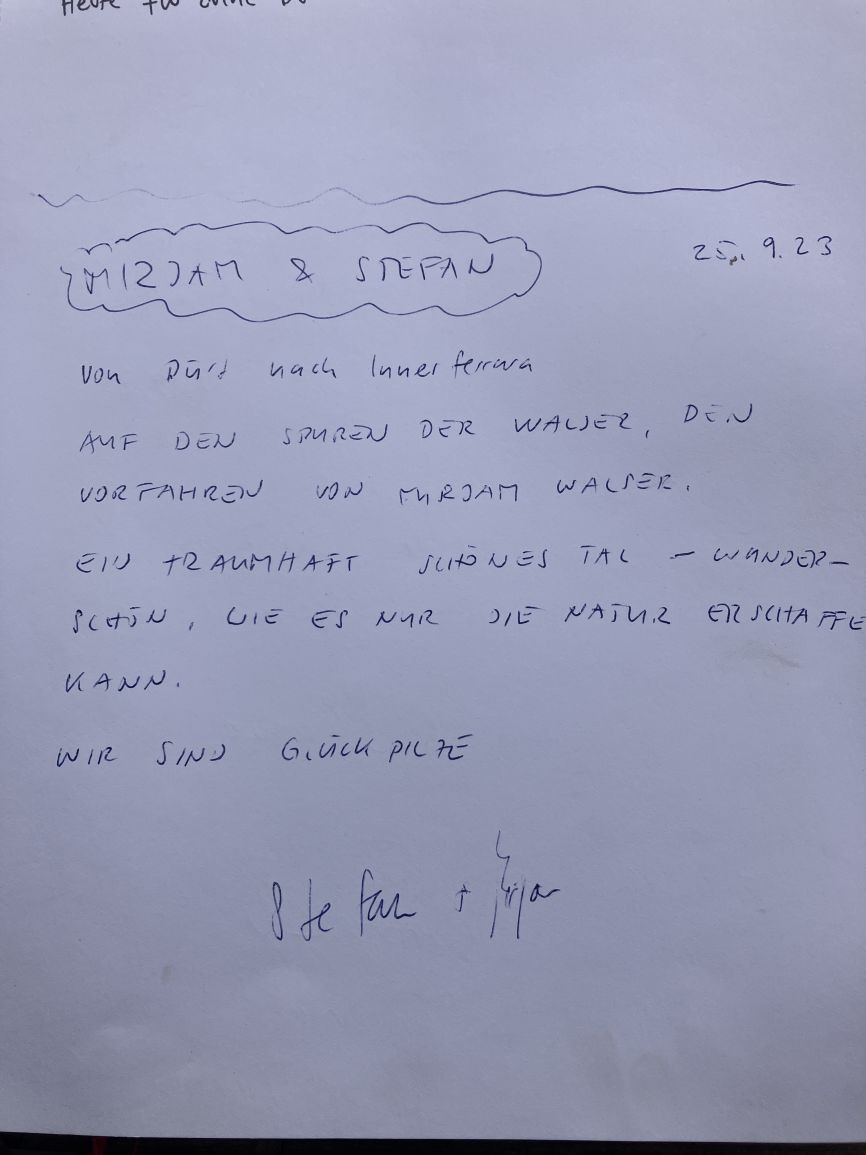 Heute für
MIRJAM & STEFAN
25. 9. 23
Von nach Innerferrera
AUF DEN SPUREN DER WALSER, DEN
VORFAHREN VON MIRJAM WALSER.
EIN TRAUMHAFT SCHÖNES TAL – WUNDER–
SCHÖN, WIE ES NUR DIE NATUR ERSCHAFFE
KANN.
WIR SIND GLÜCKPILZE
Stefan +